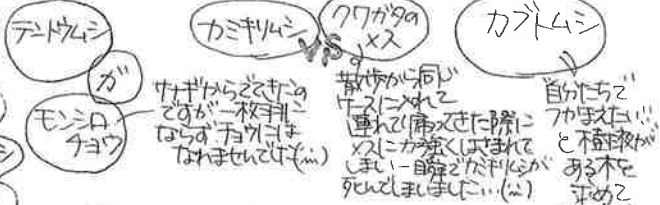 テントウムシ
ガ
モンシロ
チョウ
サナギからでてきたの
ですが一枚羽に
ならずチョウには
なれませんでした(;;)
カミキリムシ
VS
クワガタの
メス
散歩から同じ
ケースに入れて
連れて帰ってきた際に
メスに力強くはさまれて
しまい一瞬でカミキリムシが
死んでしまいました…(;;)
カブトムシ
自分たちで
つかまえたい!!
と樹液が
ある木を
求めて